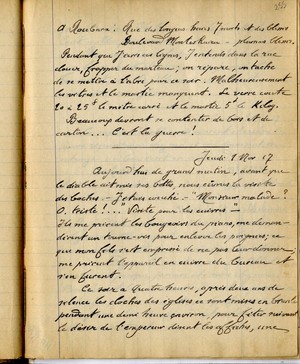 A Roubaix: Rue des Longues haies
Boulevard
Pendant que j'écris ces lignes, j'entends dans la rue
clouer, frapper du marteau, on répare, on tâche
de se mettre à l'abri pour ce soir. Malheureusement
les vitres et le mastic manquent. Le verre coûte
20 à 25f le mètre carré et le mastic 5f le Kilog.
Beaucoup devront se contenter de bois et de
carton... C'est la guerre!
Jeudi 1 Nov 17
Aujourd'hui de grand matin, avant que
le diable ait mis ses bottes nous eûmes la visite
des boches - J'étais couché - "Monsieur malade?
O. triste!..." Visite pour les cuivres -
Ils me prirent les bougeoirs du piano, me deman-
dèrent un tourne vis pour enlever les
que mon fils s'est empressé de ne pas leur donner;
me prirent l'appareil en cuivre du bureau et
s'en furent.
Ce soir à quatre heures, après deux ans de
silence les cloches des églises se sont mises en branle
pendant une demi heure environ, pour fêter suivant
le désir de l'empereur disent les affiches, une